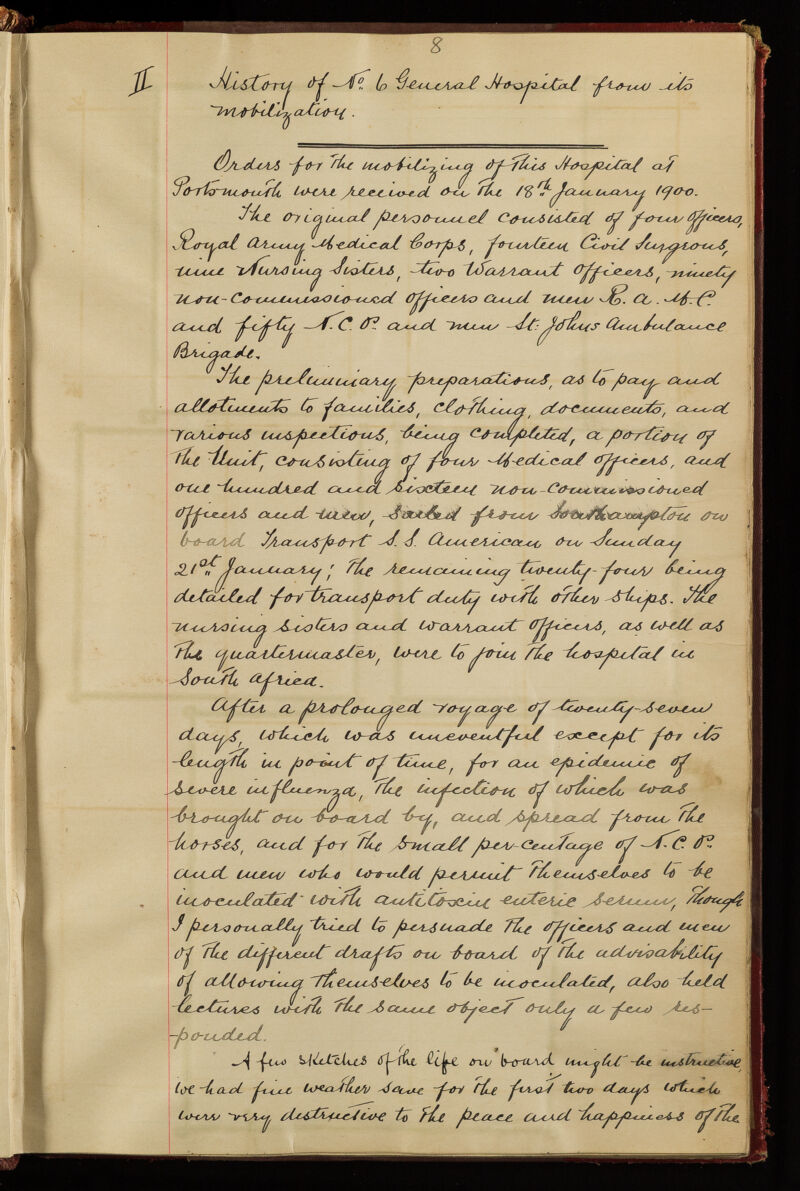 8
II History of No. 6 General Hospital from its
mobilization.
Orders for the mobilizing of this Hospital at
Portsmouth were received on the 18th January 1900.
The original personnel consisted of four officers,
Royal Army Medical Corps, fourteen Civil Surgeons,
nine Nursing Sisters, two Warrant Officers, ninety
non-commissioned officers and men R.A.M.C.
and fifty N.C.Os. and men St: Johns Ambulance
Brigade.
The preliminary preparations, as to pay and
allotments to families, clothing, documents, and
various inspections, being completed, a portion of
the Unit, consisting of four Medical officers, and
one hundred and sixteen non-commissioned
officers and men, sailed from Southampton on
board Transport S.S. American on Sunday
21st January; the remaining twenty-four being
detailed for transport duty with other ships. The
nursing sisters and warrant officers, as well as
the quartermaster, were to join the hospital in
South Africa.
After a prolonged voyage of twenty-seven
days, which was uneventful except for its
length in point of time, for an epidemic of
severe influenza, the infection of which was
brought on board by, and spread from the
horses, and for the small per-centage of N.C.Os.
and men who would permit themselves to be
inoculated with antitoxin enteric serum, though
I personally tried to persuade the officers and men
of the different drafts on board of the advisability
of allowing themselves to be inoculated, also held
lectures with the same object only a few res-
ponded.
A few sketches of the life on board might be instructive,
we had fine weather save for the first two days which
were very destructive to the peace and happiness of the